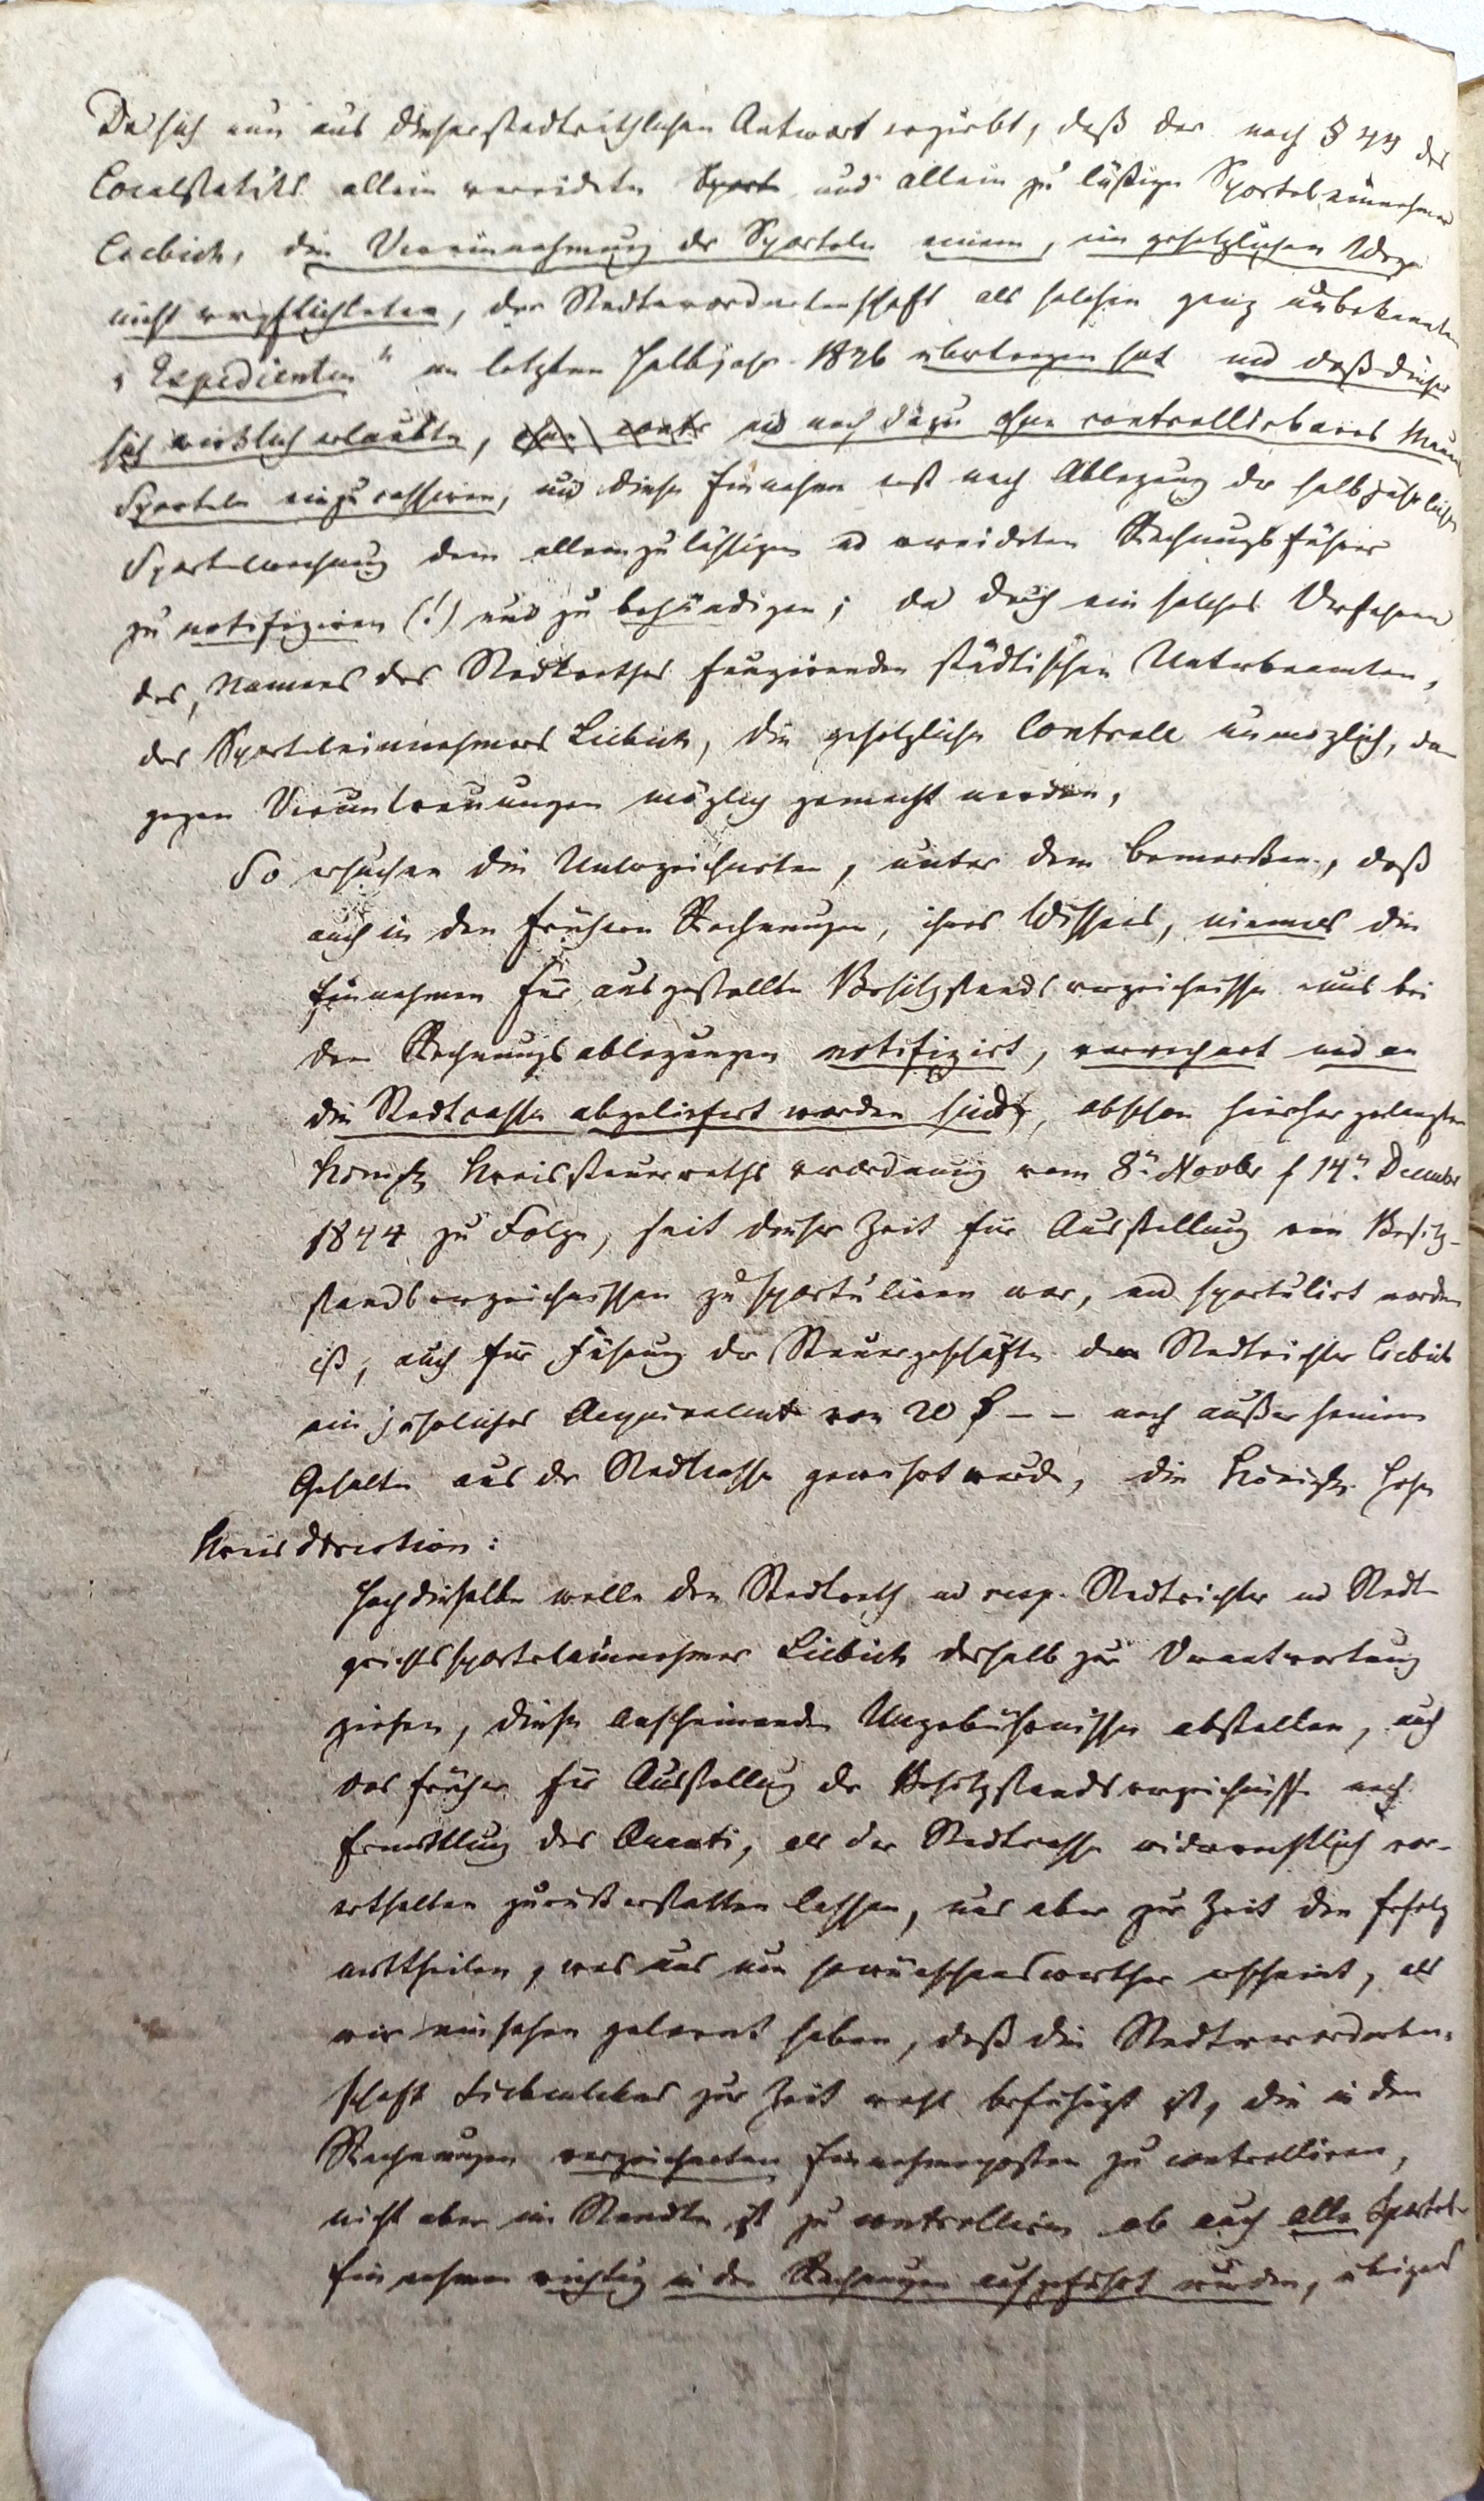 Da sich nun aus dieser stadträthlichen Antwort ergiebt, daß der nach § 44 des
Localstatuts allein vereidete Sport und allein zu läßige Sporteleinnehmer
Liebich, die Vereinnahmung der Sporteln einem, im gesetzlichen Wege
nicht verpflichteten, der Stadtverordnetenschaft als solchen ganz unbekannten
„Expedienten" im letzten Halbjahr 1846 übertragen hat und daß dieser
sich wirklich erlaubte, und noch dazu ohne controllirbares
Sporteln einzucassiren, und diese Einnahme erst nach Ablegung der halbjährlichen
Sportelrechnung dem allein zulässigen und vereideten Rechnungsführer
zu notifiziren (!) und zu behändigen; da durch ein solches Verfahren
des, Namens des Stadtrathes fungirenden städtischen Unterbeamten,
des Sporteleinnehmers Liebich, die gesetzliche Controle unmöglich, da-
gegen Veruntreuungen möglich gemacht werden,
So ersuchen die Unterzeichneten, unter dem Bemerken, daß
auch in den frühern Rechnungen, ihres Wissens, niemals die
Einnahmen für ausgestellte Besitzstandsverzeichnisse uns bei
den Rechnungsablegungen notifizirt, verrechnet und an
die Stadtcasse abgeliefert worden sind, obschon hierher gelangten
Königl. Kreissteuerraths verordnung vom 8n Novbr / 14n December
1844 zu Folge, seit dieser Zeit für Ausstellung von Besitz-
standsverzeichnissen zu sportuliren war, und sportulirt worden
ist, auch für Führung der Steuergeschäfte dem Stadtrichter Liebich
ein jährliches Aequivalent von 20 – – noch außer seinem
Gehalte aus der Stadtcasse gewährt wurde, die Königl. Hohe
Kreisdirection:
Hochdieselbe wolle den Stadtrath und resp. Stadtrichter und Stadt-
gerichtssporteleinnehmer Liebich deshalb zur Verantwortung
ziehen, diese anscheinenden Ungebührnisse abstellen, auch
das früher für Ausstellung der Besitzstandsverzeichnisse nach
Ermittlung des Quanti, als der Stadtcasse widerrechtlich vor-
enthalten zurückerstatten lassen, uns aber zur Zeit den Erfolg
mittheilen, was uns um so wünschenswerther erscheint, als
wir einsehen gelernt haben, daß die Stadtverordneten-
schaft Siebenlehns zur Zeit wohl befähigt ist, die in den
Rechnungen verzeichneten Einnahmeposten zu controlliren,
nicht aber im Stande ist zu controlliren ob auch alle Sportel-
Einnahmen richtig in den Rechnungen aufgeführt wurden, übrigens